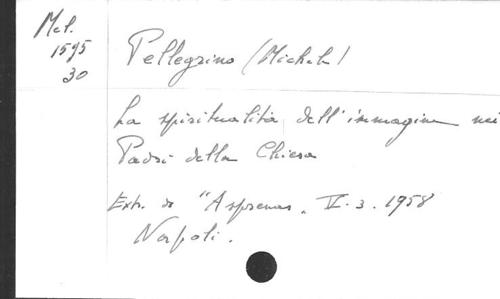 Mel.
1595
30
Pellegrino (Michele)
La spiritualità dell'immagine nei
Padri della Chiesa
Extr. de "Asprenas, V. 3. 1958
Napoli.